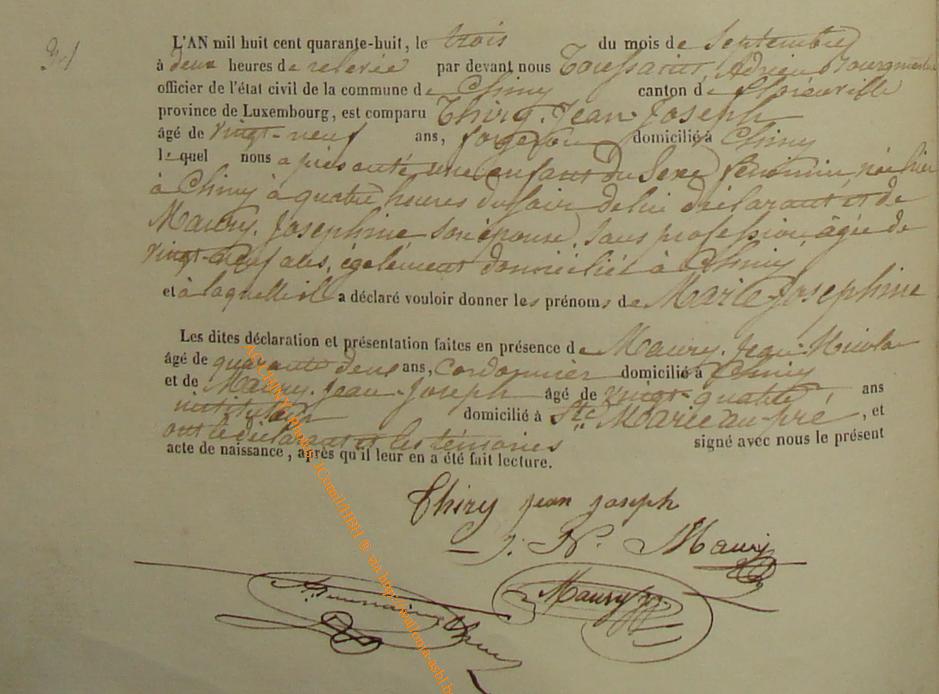 L'AN mil huit cent quarante-huit, le trois du mois de Septembre
à deux heures de relevée par devant nous Toussaint, Adrien Bourgmestre
officier de l'état civil de la commune de Chiny canton de Florenville
province de Luxembourg, est comparu Thiry, Jean Joseph
âgé de vingt-neuf ans, forgeron domicilié à Chiny
lequel nous a présenté une enfant du Sexe féminin née hier
à Chiny à quatre heures du soir de lui déclarant et de
Maury, Josephine son épouse, sans profession, âgée de
vingt-neuf ans, également domiciliée à Chiny
et à laquelle il a déclaré vouloir donner les prénoms de Marie-Josephine
Les dites déclaration et présentation faites en présence de Maury, Jean-Nicolas
âgé de quarante deux ans, Cordonnier domicilié à Chiny
et de Maury, Jean-Joseph âgé de vingt-quatre ans
instituteur domicilié à Ste Marie au-pré, et
ont le déclarant et les témoins signé avec nous le présent
acte de naissance, après qu'il leur en a été fait lecture.
Thiry jean joseph
J. N. Maury
Maury